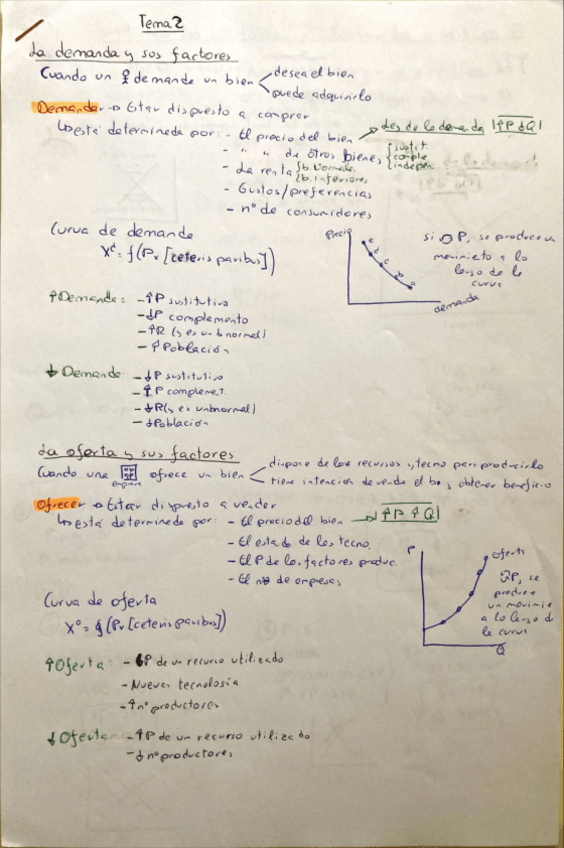 Tema 2
La demanda y sus factores
Cuando un demande un bien < desea el bien
puede adquirirlo
Demandar → Estar dispuesto a comprar
↳ está determinada por: - El precio del bien → Ley de la demanda |↑P ↓Q|
- " " de otros bienes { sustit.
comple
indepen.
- La renta { b. Normale.
b. inferiores
- Gustos/preferencias
- nº de consumidores
Curva de demanda
Xᵈ = f(Pₓ [ceteris paribus])
Precio
e
d
c
b
a
demanda
si P, se produce un
movimieto a lo
largo de la
curva
↑Demanda: - ↑P sustitutivo
- ↓P complemento
- ↑R (y es un b normal)
- ↑Población
↓Demanda: - ↓P sustitutivo
- ↑P complemet.
- ↓R (y es un b normal)
- ↓Población
La oferta y sus factores
Cuando una empresa ofrece un bien < dispone de los recursos y tecno para producirlo
tiene intención de vende el b. y obtener beneficio
Ofrecer → Estar dispuesto a vender
↳ está determinada por: - El precio del bien → |↑P ↑Q|
- El estado de las tecno.
- El P de los factores produc.
- El nº de empesas
P
Oferta
Q
P, se
produce
un movimie
a lo largo de
la curva
Curva de oferta
Xᵒ = f(Pₓ [ceteris paribus])
↑Oferta: - ↓P de un recurso utilizado
- Nueva tecnología
- ↑nº productores
↓Oferta: - ↑P de un recurso utilizado
- ↓nº productores